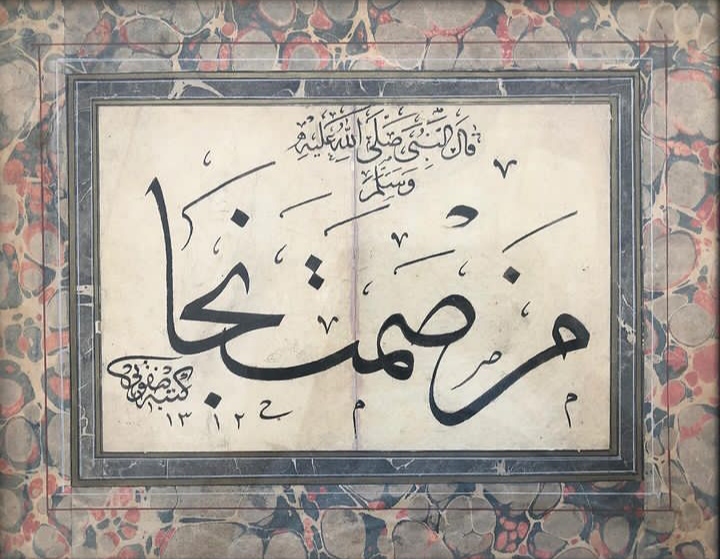 قَالَ النَّبِيُّ صَلَّى اللهُ عَلَيْهِ
وَسَلَّمَ
مَنْ صَمَتَ نَجَا
كتبه
١٣١٢